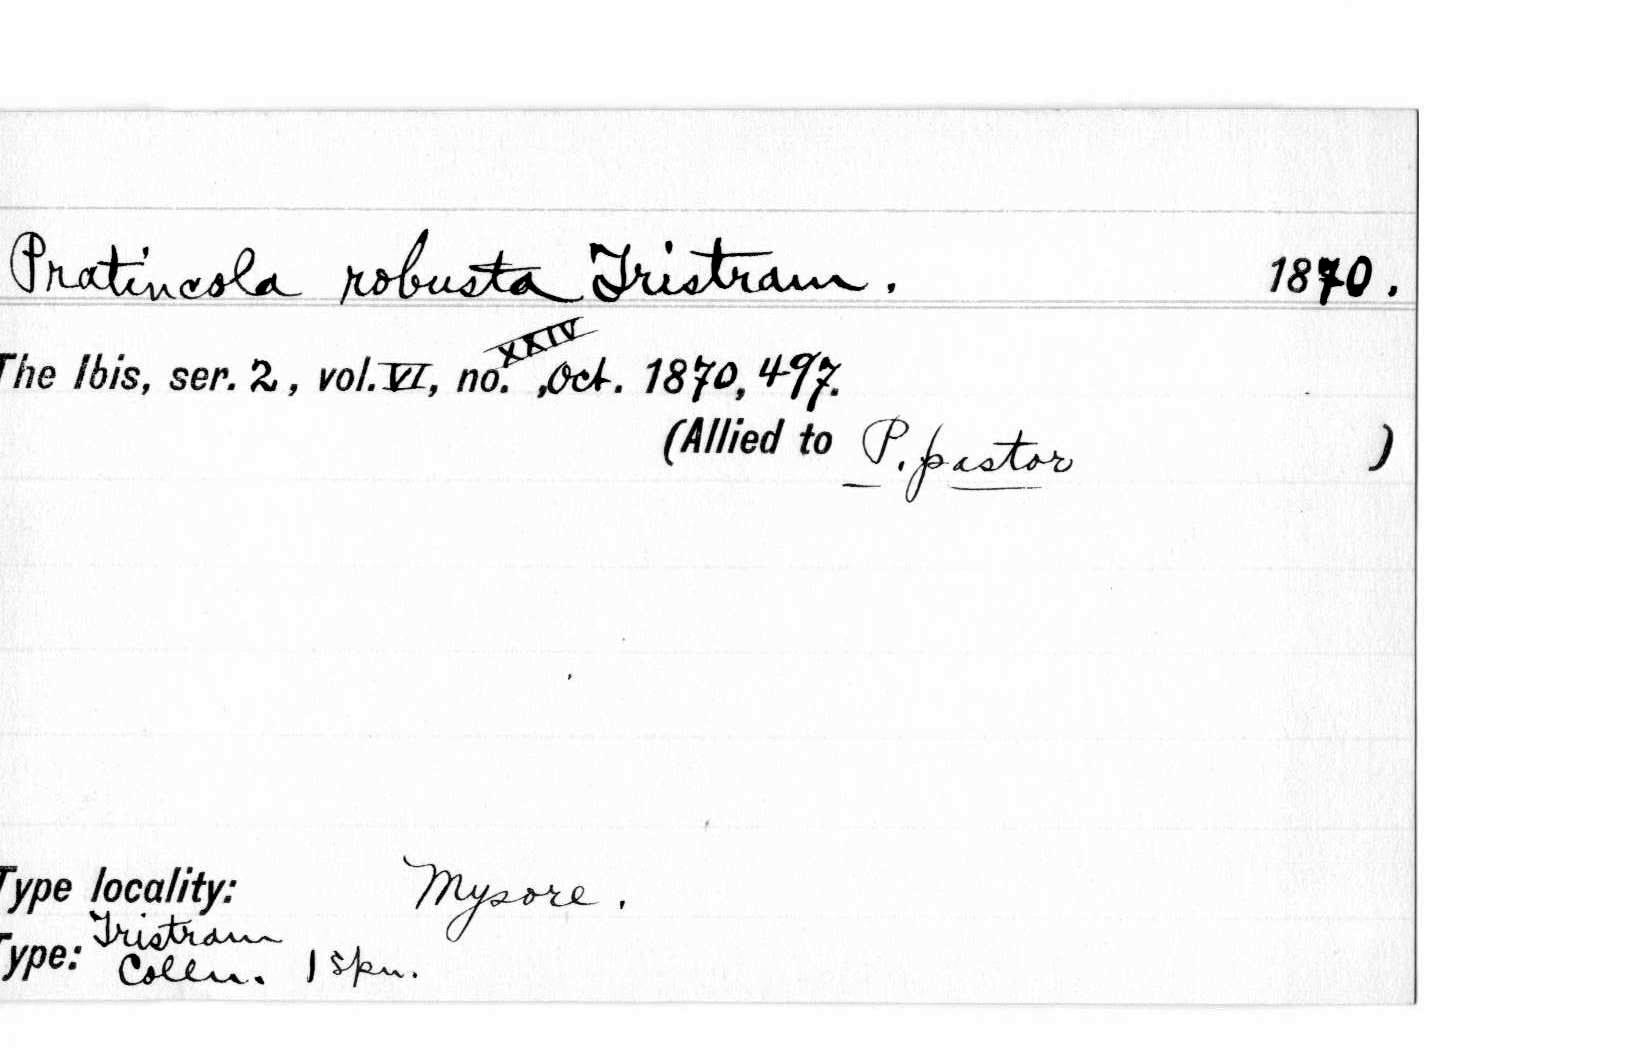 Pratincola robusta Tristram. 1870.
The Ibis, ser. 2, vol. VI, no. XXIV, Oct. 1870, 497.
(Allied to P. pastor )
Type locality: Mysore.
Type: Tristram
Colln. 1 spn.